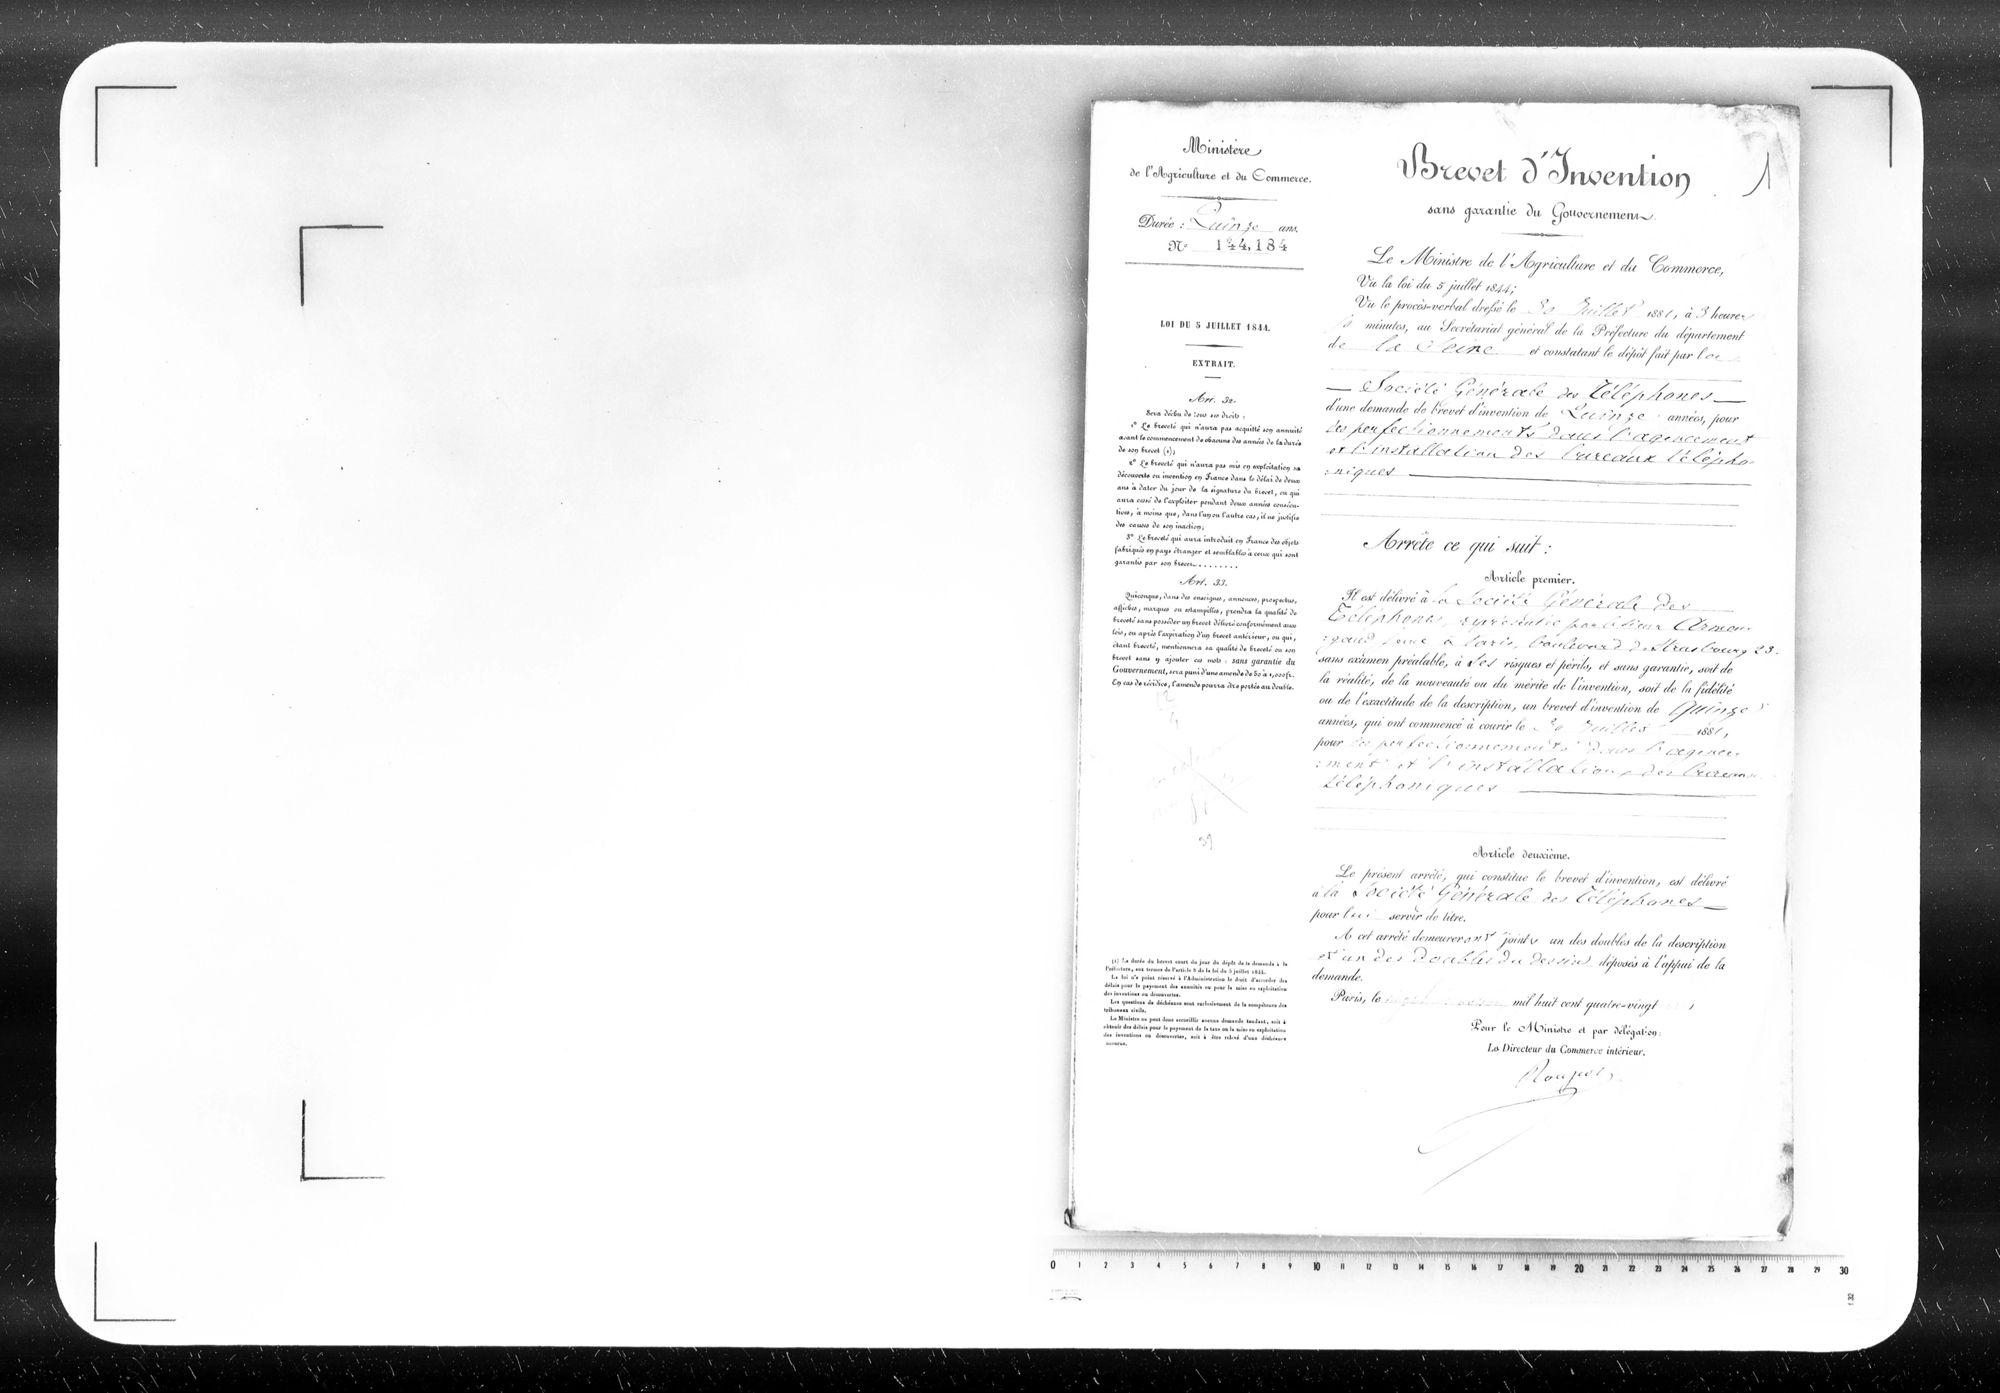 Ministère
de l'Agriculture et du Commerce.
Durée : Quinze ans.
N° 144,184
LOI DU 5 JUILLET 1844.
EXTRAIT.
Art. 32.
Sera déchu de tous ses droits :
1° Le breveté qui n'aura pas acquitté son annuité
avant le commencement de chacune des années de la durée
de son brevet (1);
2° Le breveté qui n'aura pas mis en exploitation sa
découverte ou invention en France dans le délai de deux
ans à dater du jour de la signature du brevet, ou qui
aura cessé de l'exploiter pendant deux années consécu-
tives, à moins que, dans l'un ou l'autre cas, il ne justifie
des causes de son inaction;
3° Le breveté qui aura introduit en France des objets
fabriqués en pays étranger et semblables à ceux qui sont
garantis par son brevet........
Art. 33.
Quiconque, dans des enseignes, annonces, prospectus,
affiches, marques ou estampilles, prendra la qualité de
breveté sans posséder un brevet délivré conformément aux
lois, ou après l'expiration d'un brevet antérieur, ou qui,
étant breveté, mentionnera sa qualité de breveté ou son
brevet sans y ajouter ces mots : sans garantie du
Gouvernement, sera puni d'une amende de 50 à 1,000 fr.
En cas de récidive, l'amende pourra être portée au double.
39
(1) La durée du brevet court du jour du dépôt de la demande à la
Préfecture, aux termes de l'article 8 de la loi du 5 juillet 1844.
La loi n'a point réservé à l'Administration le droit d'accorder des
délais pour le payement des annuités ou pour la mise en exploitation
des inventions ou découvertes.
Les questions de déchéance sont exclusivement de la compétence des
tribunaux civils.
Le Ministre ne peut donc accueillir aucune demande tendant, soit à
obtenir des délais pour le payement de la taxe ou la mise en exploitation
des inventions ou découvertes, soit à être relevé d'une déchéance
encourue.
Brevet d'Invention
1
sans garantie du Gouvernement.
Le Ministre de l'Agriculture et du Commerce,
Vu la loi du 5 juillet 1844;
Vu le procès-verbal dressé le 30 Juillet 1881, à 3 heures
minutes, au Secrétariat général de la Préfecture du département
de la Seine et constatant le dépôt fait par la
Société Générale des Téléphones
d'une demande de brevet d'invention de Quinze années, pour
des perfectionnements dans l'agencement
et l'installation des bureaux télépho-
niques
Arrête ce qui suit :
Article premier.
Il est délivré à la Société Générale des
Téléphones, représentée par le sieur Armen-
gaud jeune à Paris, boulevard de Strasbourg 23.
sans examen préalable, à ses risques et périls, et sans garantie, soit de
la réalité, de la nouveauté ou du mérite de l'invention, soit de la fidélité
ou de l'exactitude de la description, un brevet d'invention de Quinze
années, qui ont commencé à courir le 30 Juillet 1881,
pour des perfectionnements dans l'agence-
ment et l'installation des bureaux
téléphoniques
Article deuxième.
Le présent arrêté, qui constitue le brevet d'invention, est délivré
à la Société Générale des Téléphones
pour lui servir de titre.
A cet arrêté demeureront joints un des doubles de la description
et un des doubles du dessin déposés à l'appui de la
demande.
Paris, le mil huit cent quatre-vingt
Pour le Ministre et par délégation:
Le Directeur du Commerce intérieur.
0 1 2 3 4 5 6 7 8 9 10 11 12 13 14 15 16 17 18 19 20 21 22 23 24 25 26 27 28 29 30